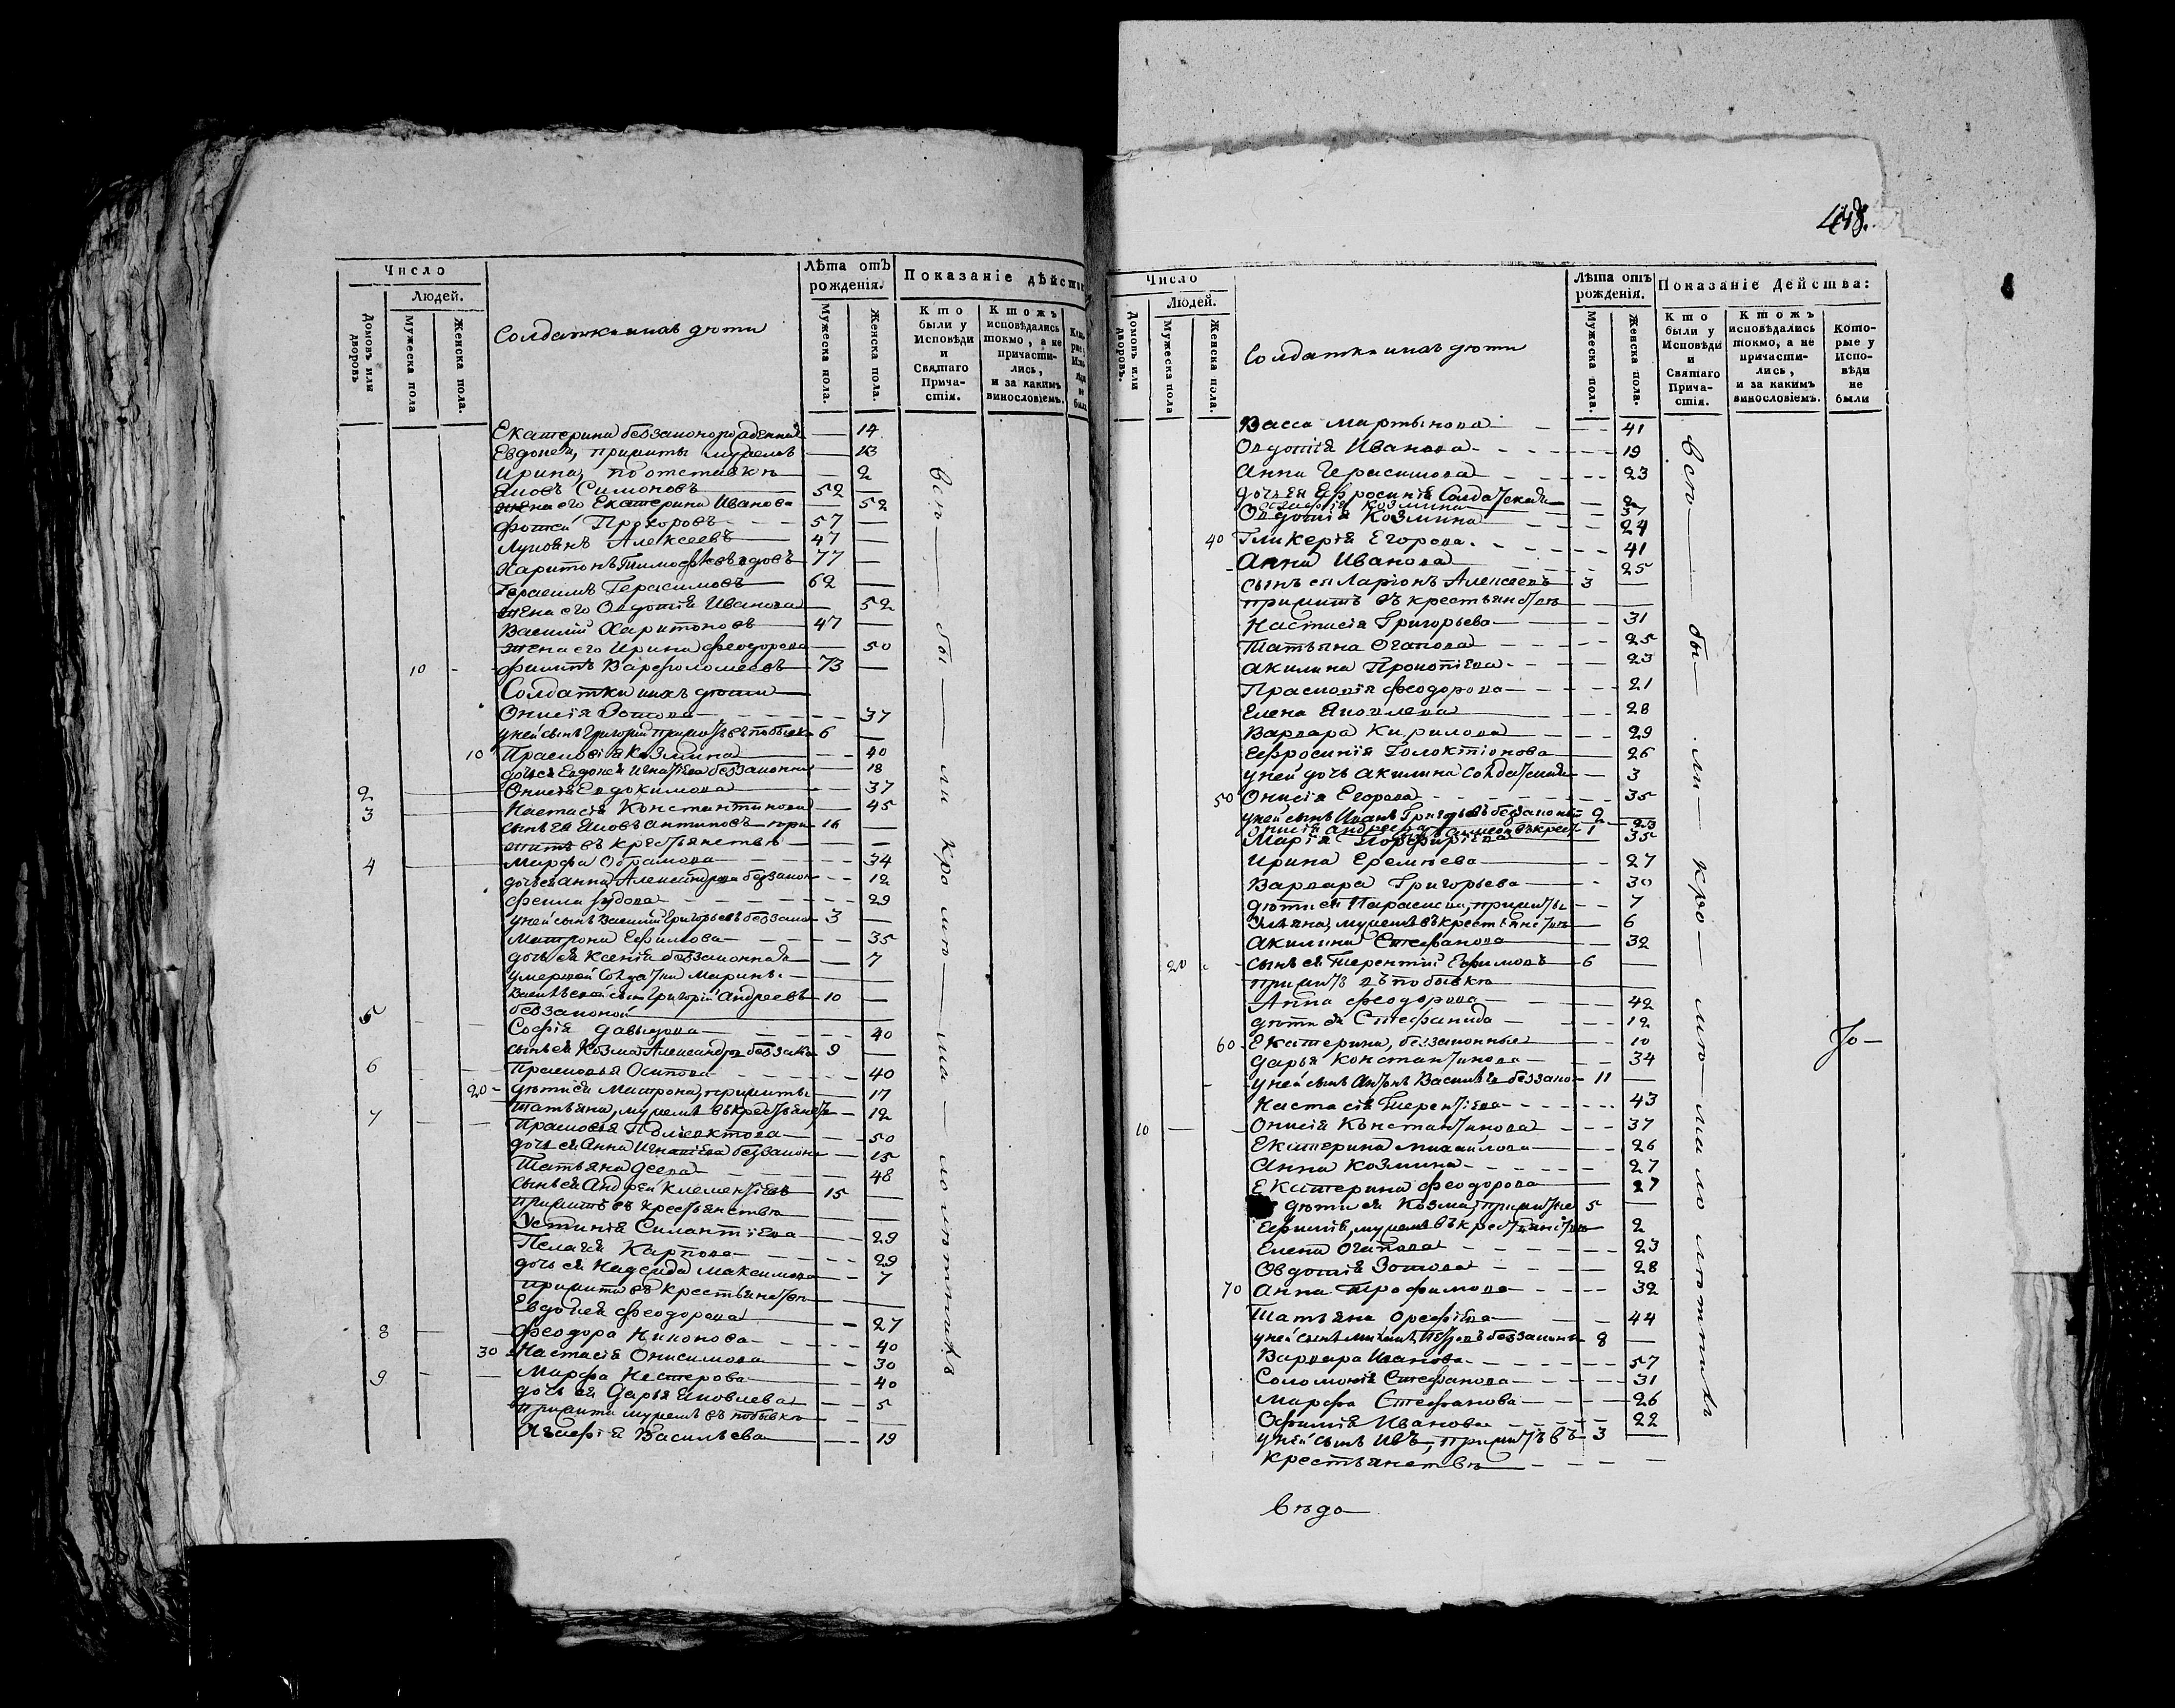 Число
Людей.
Домовъ или дворовъ
Мужеска пола
Женска пола.
Солдатки ихъ дѣти
Лѣта отъ рожденія.
Мужеска пола.
Женска пола.
Показаніе дѣйств
Кто были у Исповѣди и Святаго Причастія.
Ктожъ исповѣдались токмо, а не причастились, и за какимъ винословіемъ.
Екатерина 14
Евдокея, прижиты 13
Ирина, по отставкѣ 2
Яковъ Симоновъ 52
жена его Екатерина Иванова 52
Фотей Прохоровъ 57
Лукьянъ Алексеевъ 47
Харитонъ Тимофеевъ вдовъ 77
Герасимъ Герасимовъ 62
жена его Овдотія Иванова 52
Василій Харитоновъ 47
жена его Ирина Феодорова 50
10 Филипъ Варфоломеевъ 73
Солдатки ихъ дѣти
Онисія Зотова 37
у ней сынъ Григорій въ побывкѣ 6
10 Прасковія Козмина 40
дочь ея Евдокея Игнатіева беззаконна 18
2 Онисія Евдокимова 37
3 Настасія Константинова 45
сынъ ея Яковъ Антиповъ при 16
житъ въ крестьянствѣ
4 Марфа Обрамова 34
дочь ея Анна Александрова беззакон 12
Фекла 29
у ней сынъ Василий Григорьевъ беззако 3
Матрона Ефимова 35
дочь ея Ксенія беззаконная 7
умершей Солдатки Марины
Васильевой сынъ Григорій Андреевъ 10
беззаконой
5 Софія Давыдова 40
сынъ ея Козма Александровъ беззако 9
6 Прасковья Осипова 40
20 дѣти ея Матрона, прижиты 17
Татьяна, мужемъ въ крестьянст 12
7 Прасковія Полиектова 50
дочь ея Анна Игнатіева беззакона 15
Татьяна 48
сынъ ея Андрей Клементіевъ 15
прижитъ въ крестьянствѣ
Устинія Силантіева 29
Пелагея Карпова 29
дочь ея Надежда Максимова 7
прижита въ крестьянствѣ
Евдокея Феодорова 27
8 Феодора Никонова 40
30 Настасія Онисимова 30
9 Марфа Нестерова 40
дочь ея Дарья Яковлева 5
прижита мужемъ въ побывкѣ
Агафія Васильева 19
всѣ бы ли кро мѣ ма лолѣтнихъ
448.
Число
Людей.
Домовъ или дворовъ.
Мужеска пола
Женска пола.
Солдатки ихъ дѣти
Лѣта отъ рожденія.
Мужеска пола.
Женска пола.
Показаніе Дѣйства:
Кто были у Исповѣди и Святаго Причастія.
Ктожъ исповѣдались токмо, а не причастились, и за какимъ винословіемъ.
Которые у Исповѣди не были
Васса Мартынова 41
Овдотія Иванова 19
Анна Герасимова 23
дочь ея Ефросинія Солдатская 2
Козмина 37
Овдотія Козмина 24
40 Гликерія Егорова 41
Анна Иванова 25
сынъ ея Ларіонъ Алексеевъ 3
прижитъ въ крестьянствѣ
Настасія Григорьева 31
Татьяна Оганова 25
Акилина Прокопіева 23
Прасковія Феодорова 21
Елена Яковлева 28
Варвара Кирилова 29
Ефросинія Голоктіонова 26
у ней дочь Акилина Солдатская 3
50 Онисія Егорова 35
у ней сынъ Иванъ Григорьевъ беззакон 9
Онисія Андреева 23
Марія Порфиріева 35
Ирина Еремѣева 27
Варвара Григорьева 30
дѣти ея Параскева, прижиты 7
Ульяна, мужемъ въ крестьянствѣ 6
Акилина Стефанова 32
20 сынъ ея Терентій Ефимовъ 6
прижитъ въ побывкѣ
Анна Феодорова 42
дѣти ея Стефанида 12
60 Екатерина, беззаконные 10
Дарья Константинова 34
у ней сынъ Антонъ Васильевъ беззако 11
Настасія Терентіева 43
10 Онисія Константинова 37
Екатерина Михайлова 26
Анна Козмина 27
Екатерина Феодорова 27
дѣти ея Козма, прижитые 5
Ефимія, мужемъ въ крестьянствѣ 2
Елена Оганова 23
Овдотія Зотова 28
70 Анна Трофимова 32
Татьяна Орефіева 44
у ней сынъ 8
Варвара Иванова 57
Соломонія Стефанова 31
Марфа Стефанова 26
Офимія Иванова 22
у ней сынъ Ивъ, прижитъ въ 3
крестьянствѣ
всѣ бы ли кро мѣ ма ло лѣтнихъ